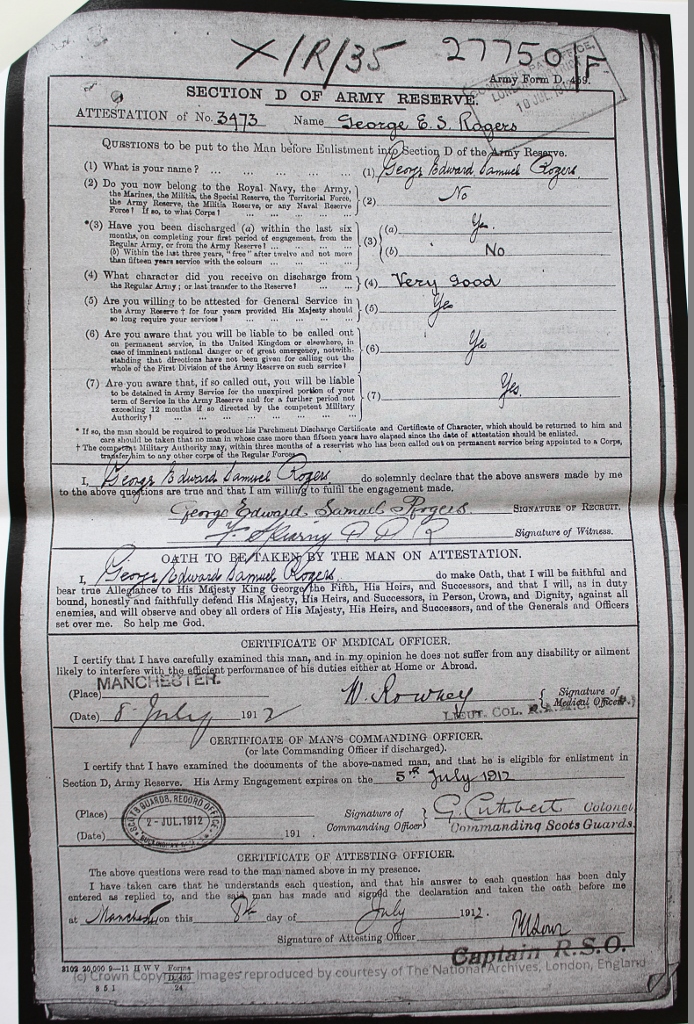 X/R/35 27750/F
Army Form D. 459.
10 JUL 1912
SECTION D OF ARMY RESERVE.
ATTESTATION of No. 3473 Name George E. S. Rogers
QUESTIONS to be put to the Man before Enlistment into Section D of the Army Reserve.
(1) What is your name? ... (1) George Edward Samuel Rogers
(2) Do you now belong to the Royal Navy, the Army,
the Marines, the Militia, the Special Reserve, the Territorial Force,
the Army Reserve, the Militia Reserve, or any Naval Reserve
Force? If so, to what Corps? (2) No
*(3) Have you been discharged (a) within the last six
months, on completing your first period of engagement, from the
Regular Army, or from the Army Reserve? ... (3) (a) Yes.
(b) Within the last three years, "free" after twelve and not more
than fifteen years service with the colours ... (b) No
(4) What character did you receive on discharge from
the Regular Army; or last transfer to the Reserve? (4) Very Good
(5) Are you willing to be attested for General Service in
the Army Reserve † for four years provided His Majesty should
so long require your services? ... (5) Yes
(6) Are you aware that you will be liable to be called out
on permanent service, in the United Kingdom or elsewhere, in
case of imminent national danger or of great emergency, notwith-
standing that directions have not been given for calling out the
whole of the First Division of the Army Reserve on such service? (6) Yes
(7) Are you aware that, if so called out, you will be liable
to be detained in Army Service for the unexpired portion of your
term of Service in the Army Reserve and for a further period not
exceeding 12 months if so directed by the competent Military
Authority? ... (7) Yes.
* If so, the man should be required to produce his Parchment Discharge Certificate and Certificate of Character, which should be returned to him and
care should be taken that no man in whose case more than fifteen years have elapsed since the date of attestation should be enlisted.
† The competent Military Authority may, within three months of a reservist who has been called out on permanent service being appointed to a Corps,
transfer him to any other corps of the Regular Forces.
I, George Edward Samuel Rogers do solemnly declare that the above answers made by me
to the above questions are true and that I am willing to fulfil the engagement made.
George Edward Samuel Rogers. SIGNATURE OF RECRUIT.
Signature of Witness.
OATH TO BE TAKEN BY THE MAN ON ATTESTATION.
I, George Edward Samuel Rogers do make Oath, that I will be faithful and
bear true Allegiance to His Majesty King George the Fifth, His Heirs, and Successors, and that I will, as in duty
bound, honestly and faithfully defend His Majesty, His Heirs, and Successors, in Person, Crown, and Dignity, against all
enemies, and will observe and obey all orders of His Majesty, His Heirs, and Successors, and of the Generals and Officers
set over me. So help me God.
CERTIFICATE OF MEDICAL OFFICER.
I certify that I have carefully examined this man, and in my opinion he does not suffer from any disability or ailment
likely to interfere with the efficient performance of his duties either at Home or Abroad.
(Place) MANCHESTER. W. Rowney Signature of
Medical Officer.
(Date) 8 July 1912 LIEUT. COL.
CERTIFICATE OF MAN'S COMMANDING OFFICER.
(or late Commanding Officer if discharged).
I certify that I have examined the documents of the above-named man, and that he is eligible for enlistment in
Section D, Army Reserve. His Army Engagement expires on the 5th July 1912
(Place) SCOTS GUARDS, RECORD OFFICE 2 - JUL. 1912 Signature of
Commanding Officer G. Cuthbert Colonel,
Commanding Scots Guards.
(Date) 191 .
CERTIFICATE OF ATTESTING OFFICER.
The above questions were read to the man named above in my presence.
I have taken care that he understands each question, and that his answer to each question has been duly
entered as replied to, and the said man has made and signed the declaration and taken the oath before me
at Manchester on this 8th day of July 1912.
Signature of Attesting Officer
Captain R.S.O.
8102 20,000 9—11 H W V Forms
D.459
24
8 5 1
(c) Crown Copyright Images reproduced by courtesy of The National Archives, London, England